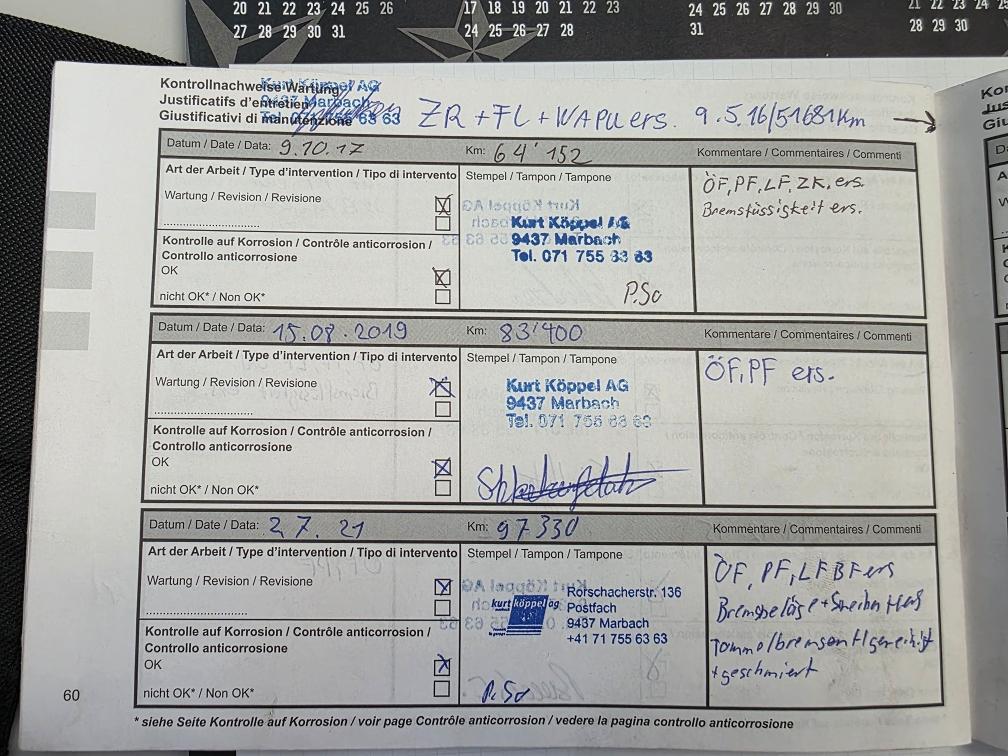 20 21 22 23 24 25 26
27 28 29 30 31
17 18 19 20 21 22 23
24 25 26 27 28
24 25 26 27 28 29 30
31
21 22 23 24 25
28 29 30
Kontrollnachweise Wartung
Justificatifs d'entretien
Giustificativi di manutenzione
Kurt Köppel AG
9437 Marbach
Tel. 071 755 63 63
ZR + FL + WAPU ers. 9.5.16/51681Km
Datum / Date / Data: 9.10.17
Km: 64'152
Kommentare / Commentaires / Commenti
Art der Arbeit / Type d'intervention / Tipo di intervento
Wartung / Revision / Revisione
Kontrolle auf Korrosion / Contrôle anticorrosion /
Controllo anticorrosione
OK
nicht OK* / Non OK*
Stempel / Tampon / Tampone
Kurt Köppel AG
9437 Marbach
Tel. 071 755 63 63
P.Sa
ÖF, PF, LF, ZK, ers.
Bremsfüssigkeit ers.
Datum / Date / Data: 15.08.2019
Km: 83'400
Kommentare / Commentaires / Commenti
Art der Arbeit / Type d'intervention / Tipo di intervento
Wartung / Revision / Revisione
Kontrolle auf Korrosion / Contrôle anticorrosion /
Controllo anticorrosione
OK
nicht OK* / Non OK*
Stempel / Tampon / Tampone
Kurt Köppel AG
9437 Marbach
Tel. 071 755 63 63
ÖF, PF ers.
Datum / Date / Data: 2.7.21
Km: 97330
Kommentare / Commentaires / Commenti
Art der Arbeit / Type d'intervention / Tipo di intervento
Wartung / Revision / Revisione
Kontrolle auf Korrosion / Contrôle anticorrosion /
Controllo anticorrosione
OK
nicht OK* / Non OK*
Stempel / Tampon / Tampone
kurt köppel ag
Rorschacherstr. 136
Postfach
9437 Marbach
+41 71 755 63 63
P.Sa
ÖF, PF, LF BF ers
Bremsbeläge + Scheiben H ers
Trommelbremsen H gereinigt
+ geschmiert
60
* siehe Seite Kontrolle auf Korrosion / voir page Contrôle anticorrosion / vedere la pagina controllo anticorrosione